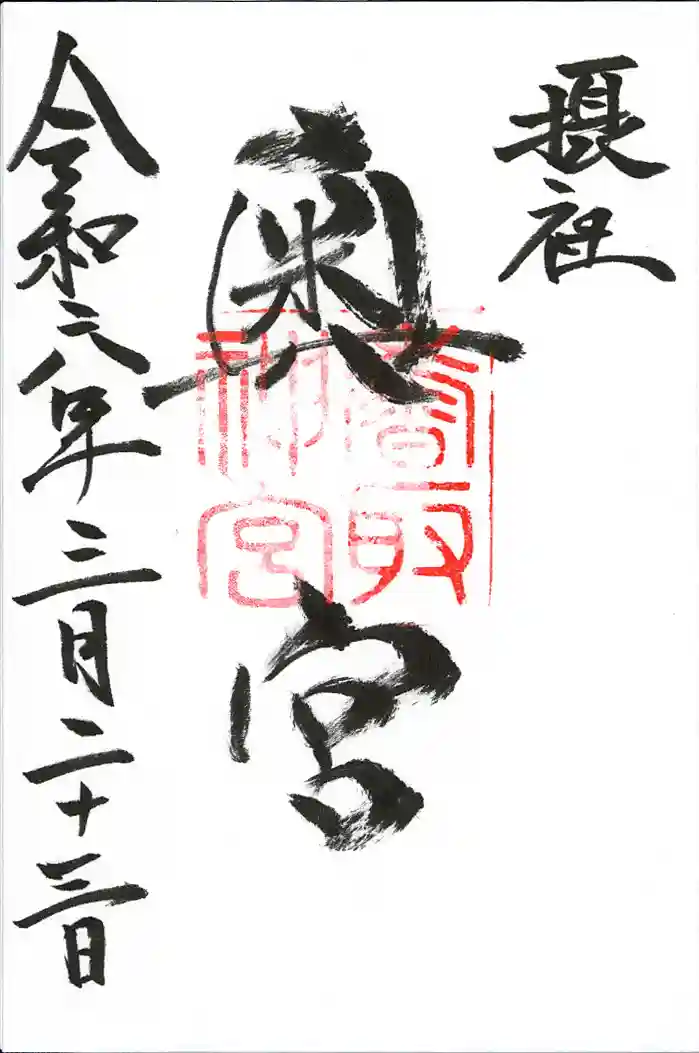 摂社
奥宮
香取
神宮
令和六年三月二十三日